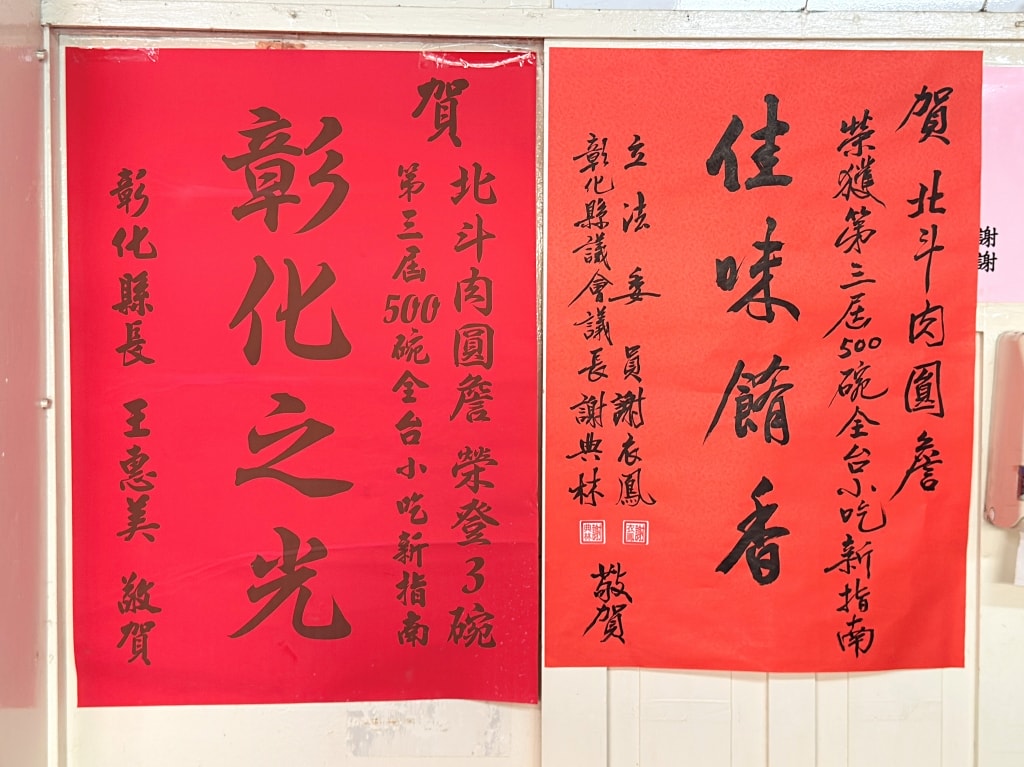 賀
北斗肉圓詹 榮登3碗
第三屆500碗全台小吃新指南
彰化之光
彰化縣長 王惠美 敬賀
賀 北斗肉圓詹
榮獲第三屆500碗全台小吃新指南
佳味餚香
立法委員謝衣鳳
彰化縣議會議長謝典林
敬賀
謝謝